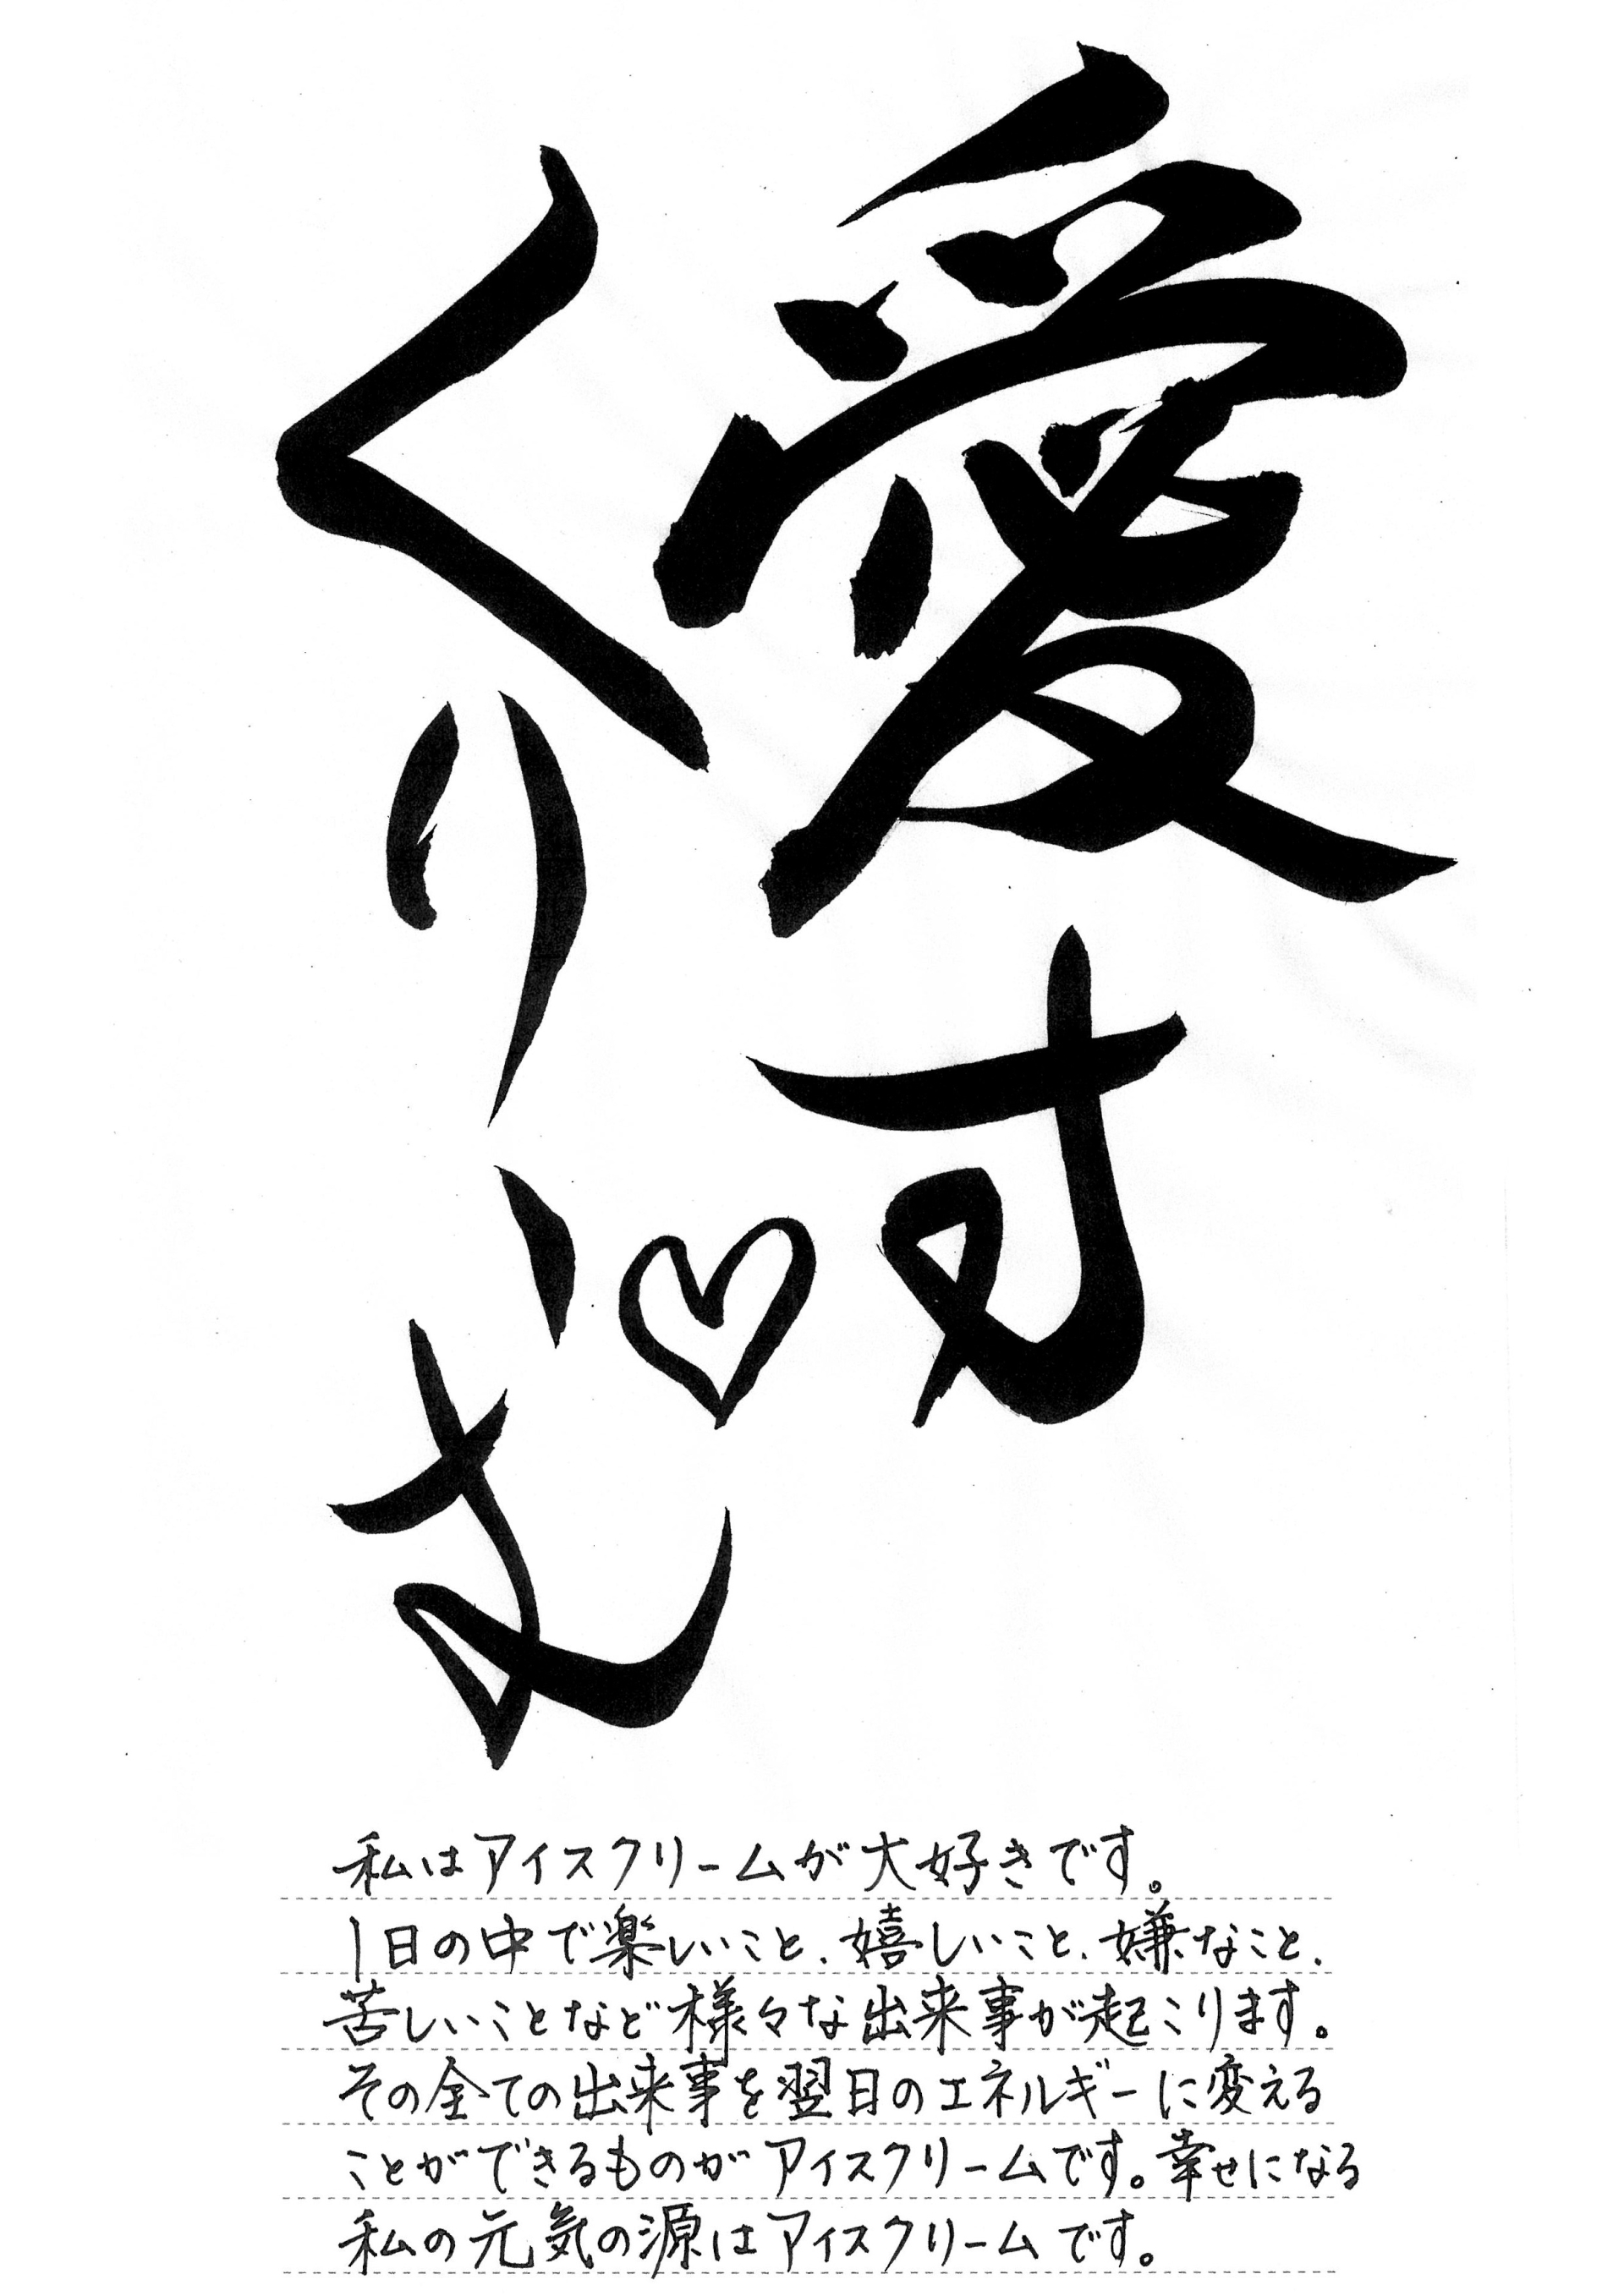 愛す
くりーむ
私はアイスクリームが大好きです。
1日の中で楽しいこと、嬉しいこと、嫌なこと、
苦しいことなど様々な出来事が起こります。
その全ての出来事を翌日のエネルギーに変える
ことができるものがアイスクリームです。幸せになる
私の元気の源はアイスクリームです。